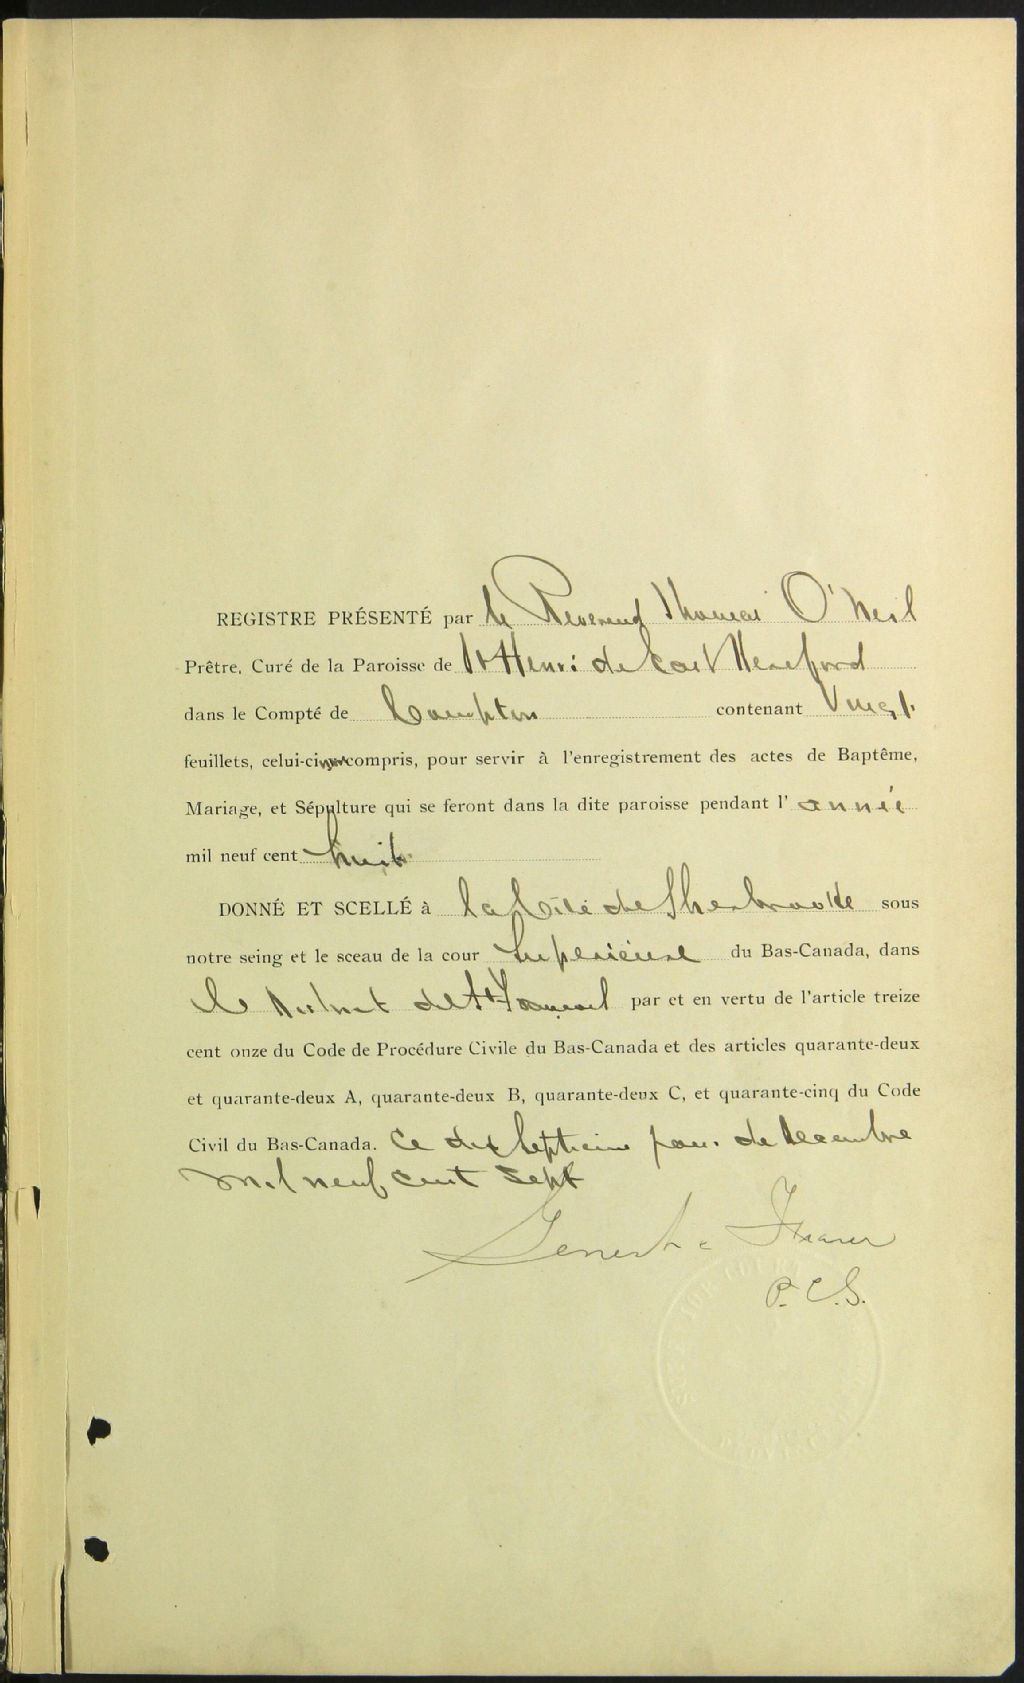 REGISTRE PRÉSENTÉ par le Reverend Thomas O'Neil
Prêtre, Curé de la Paroisse de St Henri de East Hereford
dans le Compté de Compton contenant Vingt
feuillets, celui-ci non compris, pour servir à l'enregistrement des actes de Baptême,
Mariage, et Sépulture qui se feront dans la dite paroisse pendant l' année
mil neuf cent huit
DONNÉ ET SCELLÉ à la Cité de Sherbrooke sous
notre seing et le sceau de la cour Supérieure du Bas-Canada, dans
le District de St François par et en vertu de l'article treize
cent onze du Code de Procédure Civile du Bas-Canada et des articles quarante-deux
et quarante-deux A, quarante-deux B, quarante-deux C, et quarante-cinq du Code
Civil du Bas-Canada. Ce dix septieme jour de Decembre
mil neuf cent sept
Genest & Fraser
P. C. S.